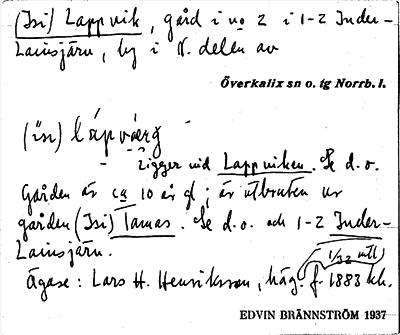 (Isi) Lappvik, gård i no 2 i 1-2 Inder-
Lainsjärn, by i N. delen av
Överkalix sn o. tg Norrb. l.
(ìsi) lápværg
Ligger vid Lappviken. Se d. o.
Gården är ca 10 år gl; är utbruten ur
gården (Isi) Tamas. Se d. o. och 1-2 Inder-
Lainsjärn.
1/32 mtl
Ägare: Lars H. Henriksson, häg. f. 1883 kh.
EDVIN BRÄNNSTRÖM 1937